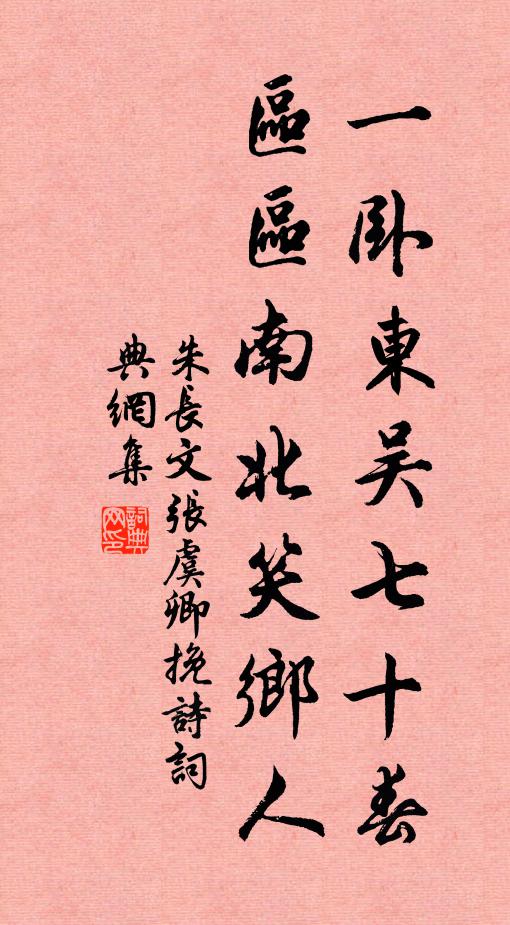 一臥東吴七十春
區區南北笑鄉人
朱長文張虞卿挽詩詞
典網集
詞典
网印